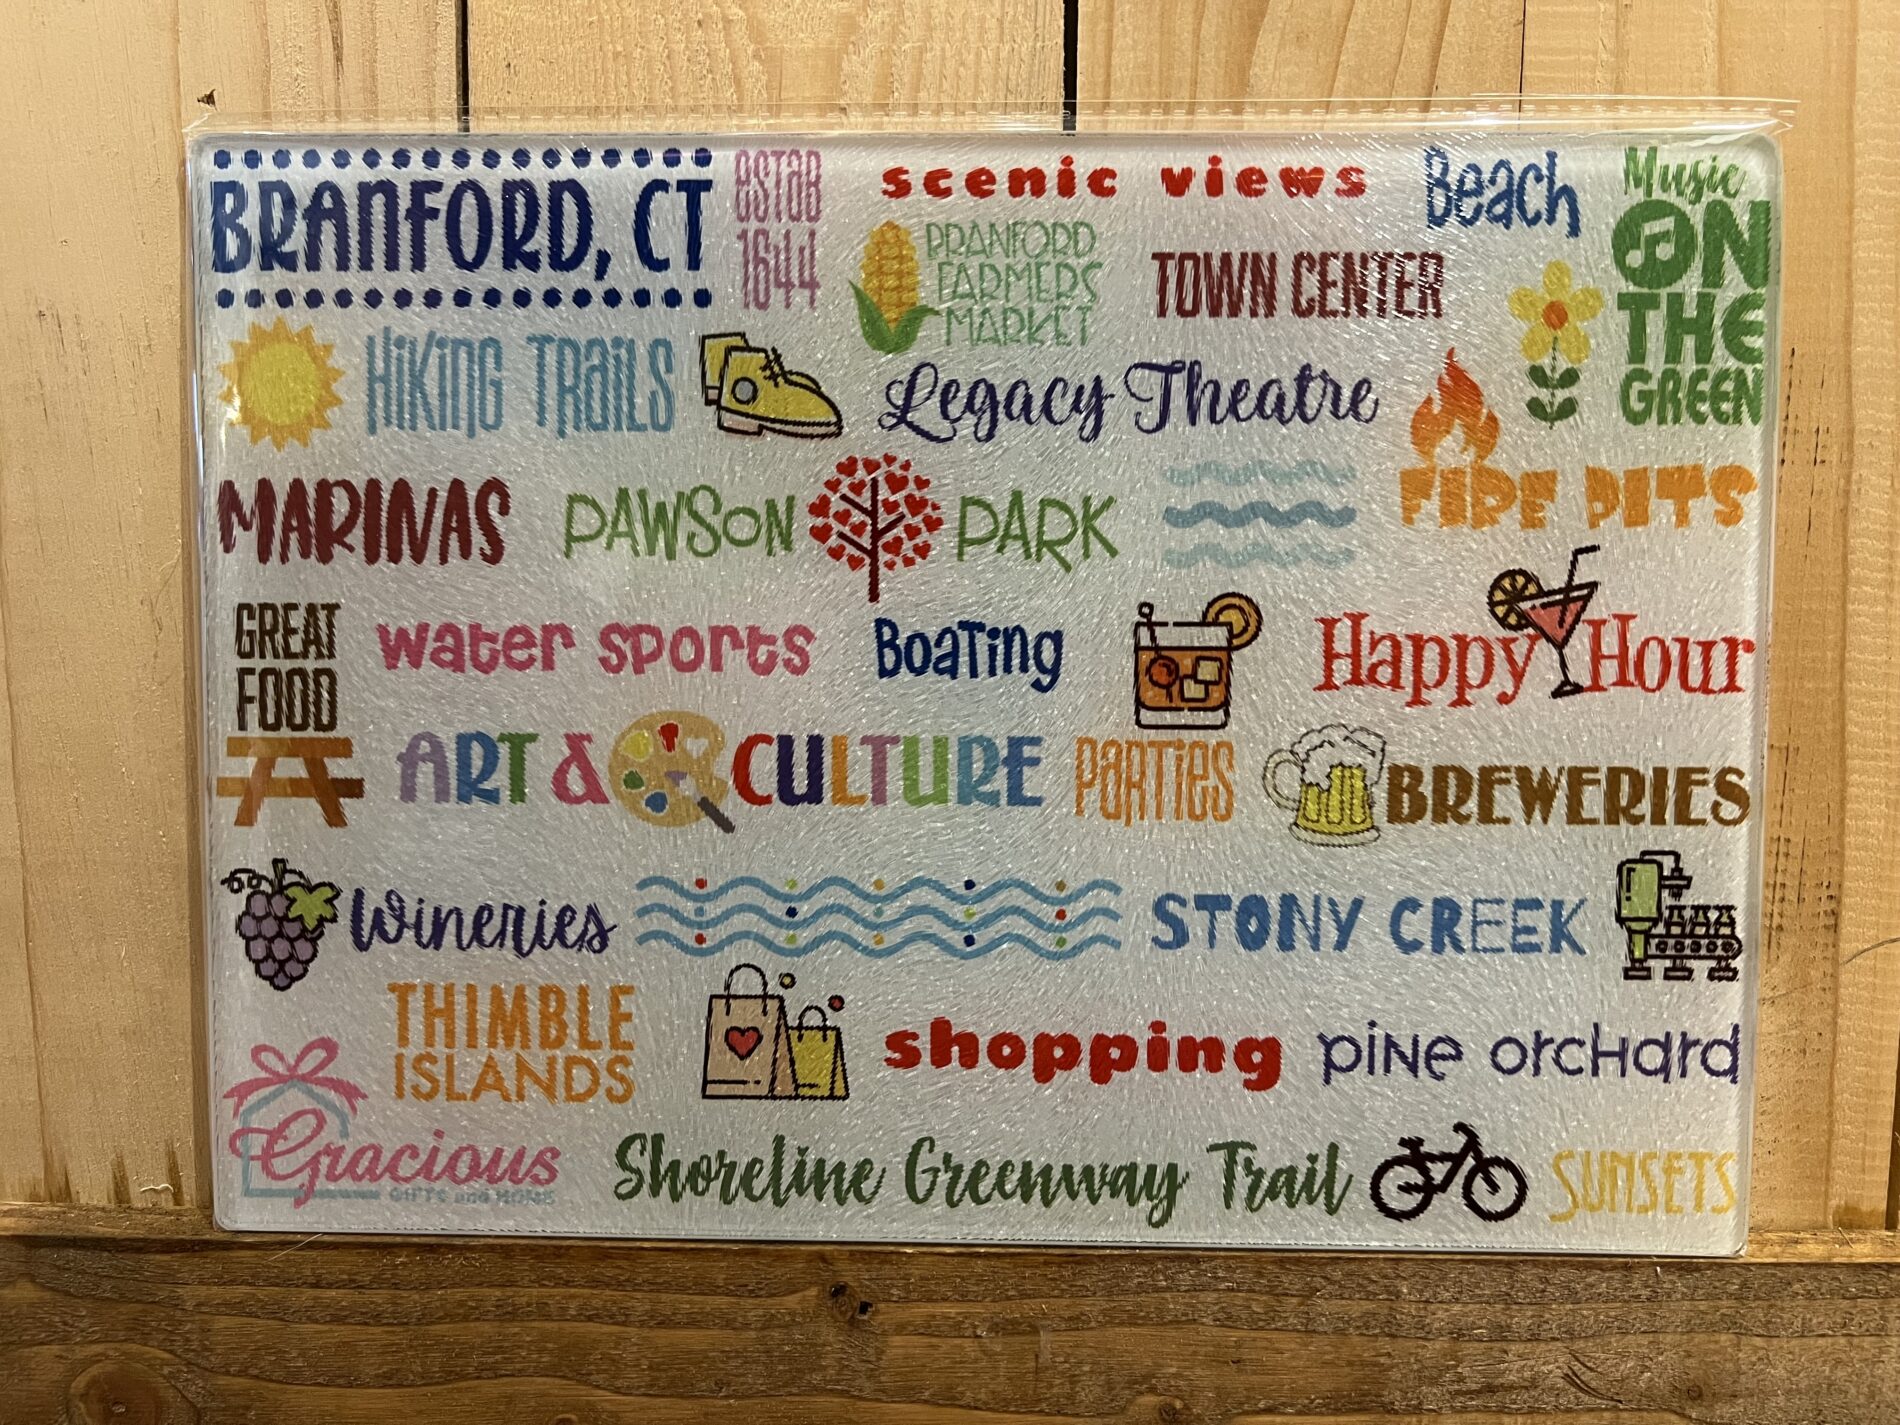 BRANFORD, CT
ESTAB
1644
scenic views
Beach
Music
ON
THE
GREEN
BRANFORD
FARMERS
MARKET
TOWN CENTER
HIKING TRAILS
Legacy Theatre
FIRE PITS
MARINAS
PAWSON PARK
GREAT
FOOD
water sports
Boating
Happy Hour
ART & CULTURE
PARTIES
BREWERIES
Wineries
STONY CREEK
THIMBLE
ISLANDS
shopping
pine orchard
Gracious
GIFTS and HOME
Shoreline Greenway Trail
SUNSETS